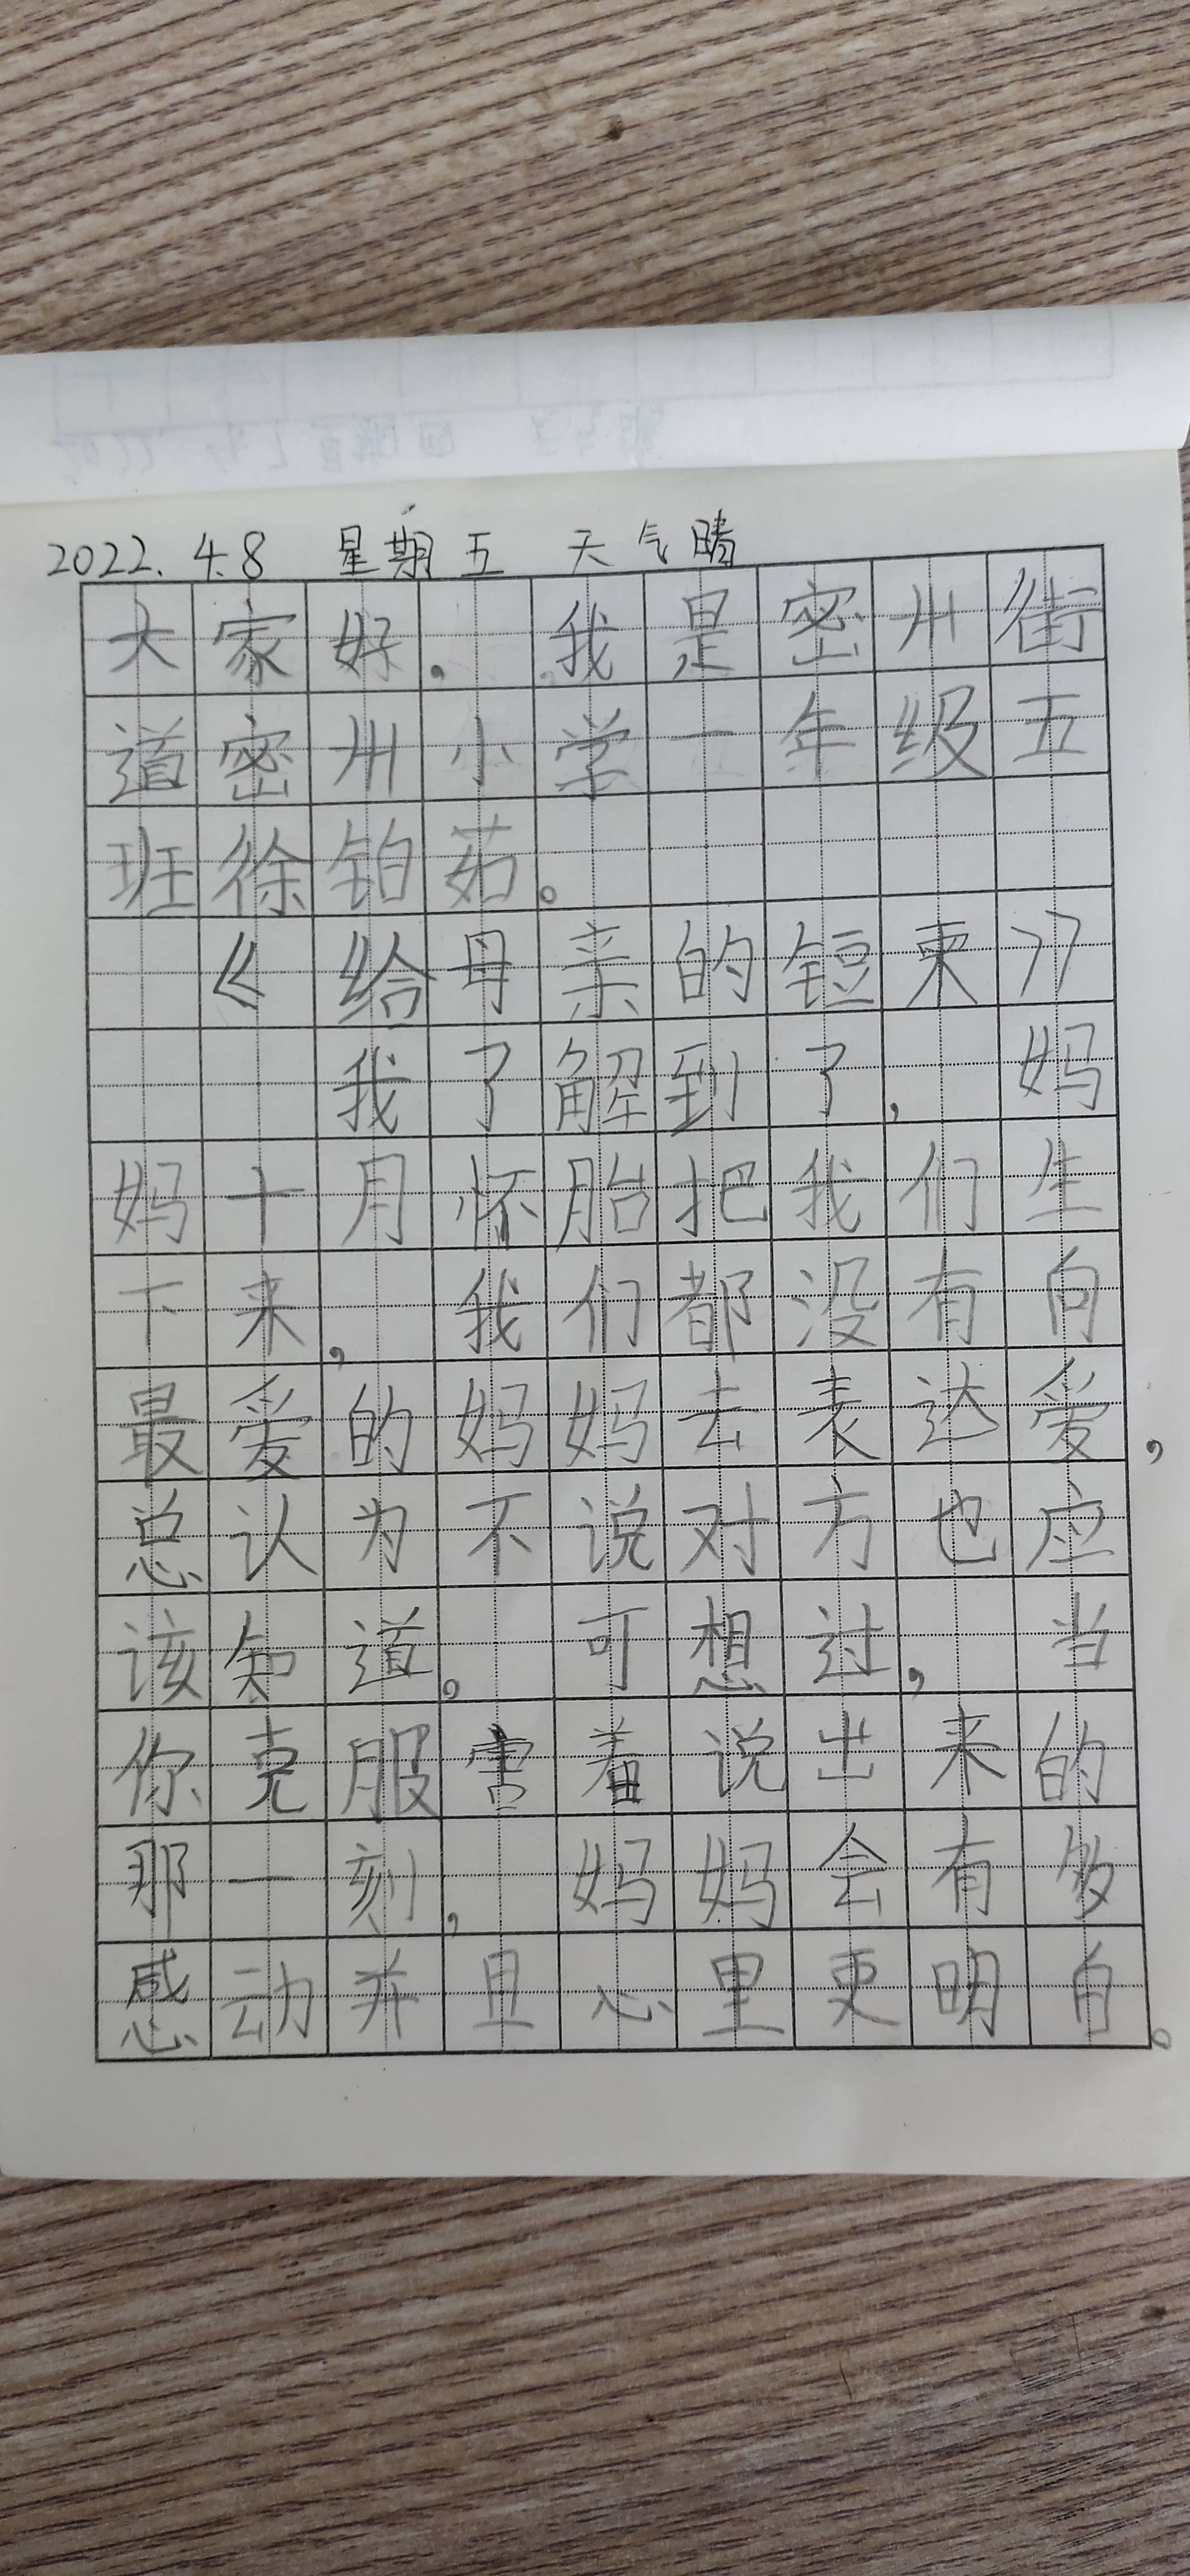 2022.4.8 星期五 天气晴
大家好。我是密州街
道密州小学一年级五
班徐铂茹。
《给母亲的短柬》
我了解到了,妈
妈十月怀胎把我们生
下来,我们都没有向
最爱的妈妈去表达爱,
总认为不说对方也应
该知道。可想过,当
你克服害羞说出来的
那一刻,妈妈会有多
感动并且心里更明白。